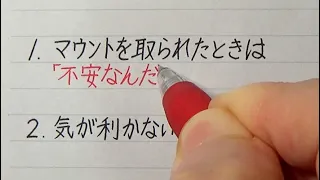 1. マウントを取られたときは
「不安なんだ
2. 気が利かない